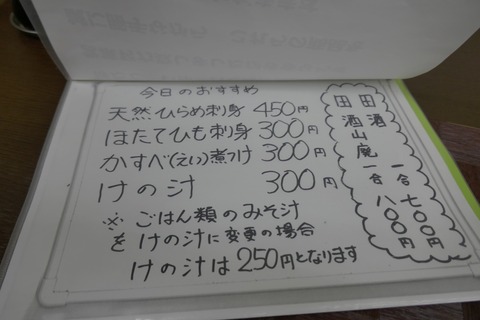 今日のおすすめ
天然ひらめ刺身 450円
ほたてひも刺身 300円
かすべ(えい)煮つけ 300円
けの汁 300円
※ごはん類のみそ汁
をけの汁に変更の場合
けの汁は250円となります
田酒 一合 七〇〇円
田酒山廃 一合 八〇〇円